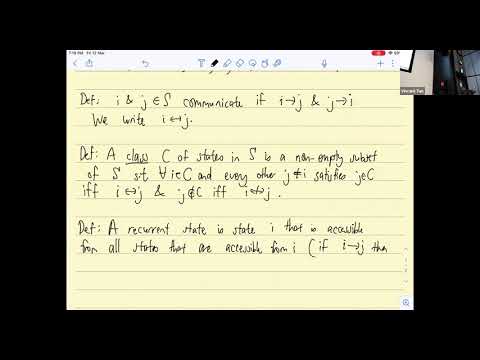 7:18 PM Fri 12 Mar
Def: i & j ∈ S communicate if i→j & j→i
We write i↔j.
Def: A class C of states in S is a non-empty subset
of S s.t. ∀i∈C and every other j≠i satisfies j∈C
iff i↔j & j∉C iff i↮j.
Def: A recurrent state is state i that is accessible
from all states that are accessible from i (if i→j then
Vincent Tan